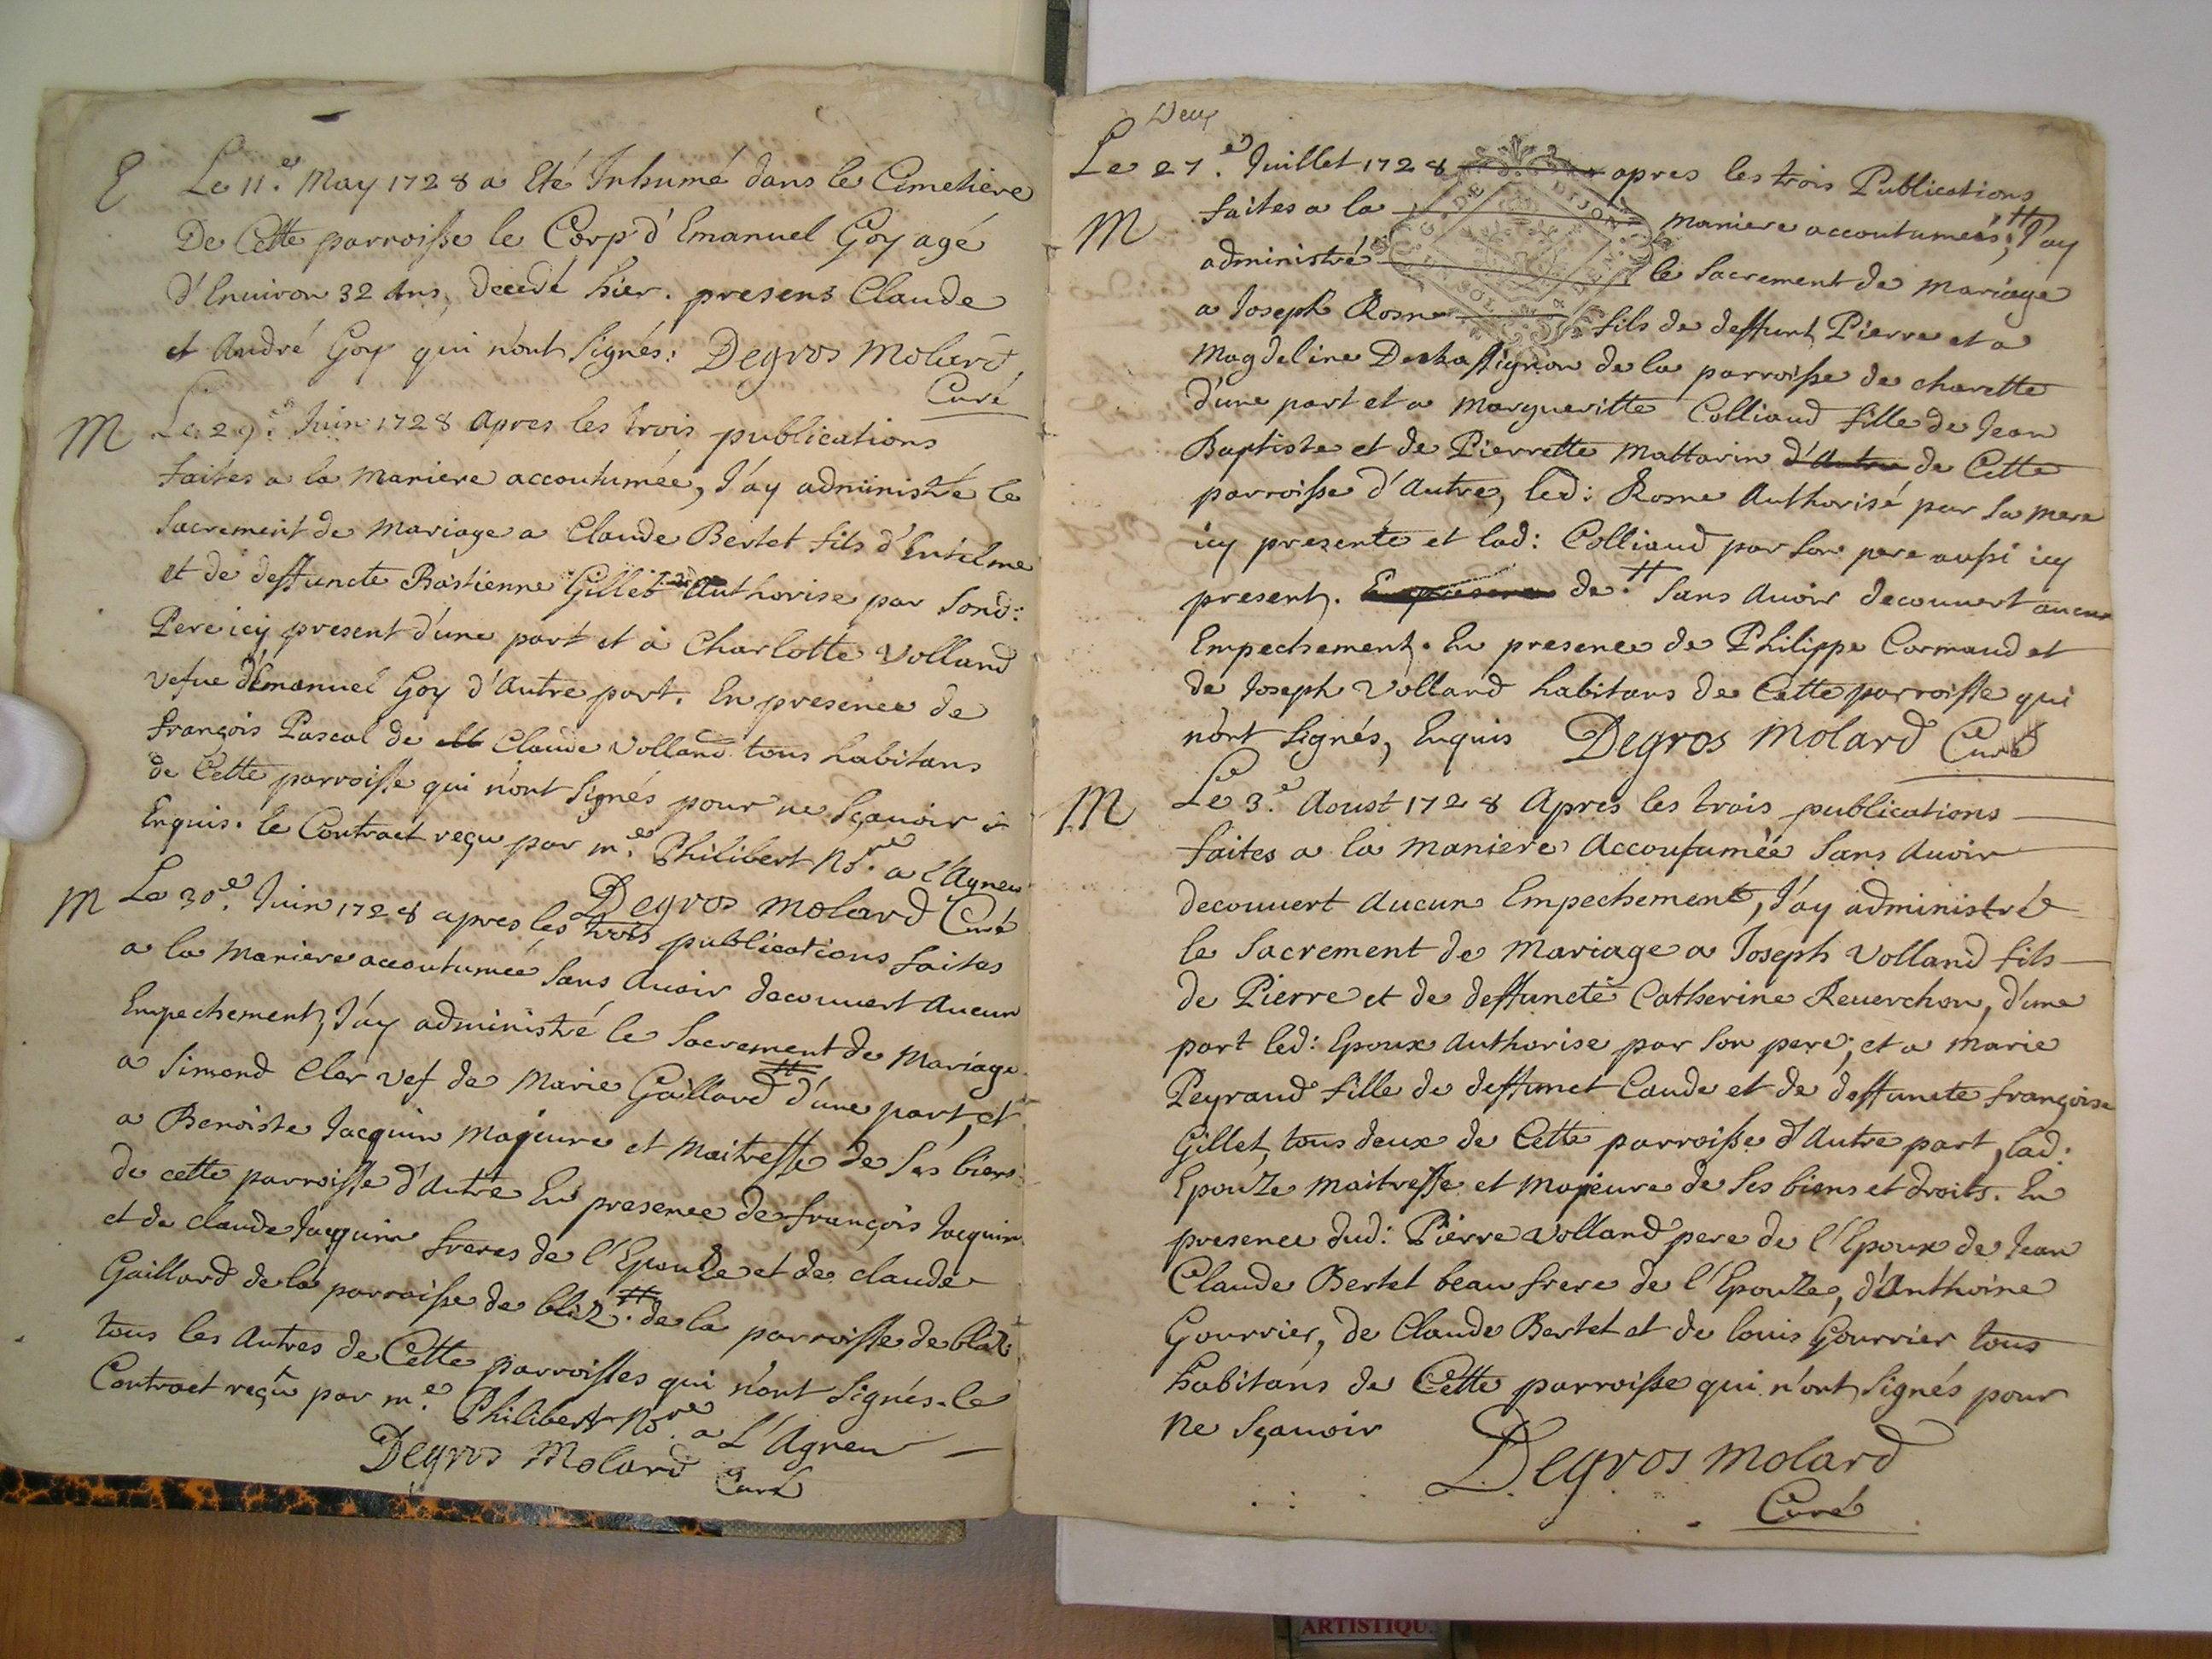 E
Le 11.e May 1728 a Eté Inhumé dans le Cimetière
De Cette parroisse le Corp d'Emanuel Goy agé
d'Enuiron 32 Ans, decedé hier. presens Claude
et André Goy qui n'ont Signés: Degros Molard
Curé
M
Le 29.e Juin 1728 Apres les trois publications
faites a la Maniere accoutumée, J'ay administré le
Sacrement de Mariage a Claude Bertet fils d'Entelme
et de deffuncte Bastienne Gillet Authorise par Sond:
Pere icy present d'une part et à Charlotte Volland
vefue d'Emanuel Goy d'Autre part. En presence de
françois Pascal de Claude Volland tous habitans
de Cette parroisse qui n'ont Signés pour ne Sçauoir
Enquis. le Contract reçu par m.e Philibert No.re a l'Agneu
Degros Molard Curé
M
Le 30.e Juin 1728 apres les trois publications faites
a la Maniere accoutumée Sans Auoir decouuert Aucun
Empechement, J'ay administré le Sacrement de Mariage
a Simond Cler vef de Marie Gaillard d'une part, et
a Benoiste Jacquin Majeure et Maitresse de Ses biens
de cette parroisse d'Autre En presence de françois Jacquin
et de claude Jacquin freres de l'Epouze et de claude
Gaillard de la parroisse de bliz. de la parroisse de bliz
tous les Autres de Cette parroisses qui n'ont Signés. le
Contract reçu par m.e Philibert No.re a L'Agneu
Degros Molard
Curé
Deux
Le 27.e Juillet 1728 apres les trois Publications
M
faites a la maniere accoutumées, J'ay
administré le Sacrement de Mariage
GEN. DE DIJON
DEUX SOLS
a Joseph Rosne fils de deffunt Pierre et a
Magdeline Deschassignon de la parroisse de charette
d'une part et a Margueritte Colliaud fille de Jean
Baptiste et de Pierrette Mattarin d'Autre de Cette
parroisse d'Autre, led: Rosne Authorisé par Sa mere
icy presente et lad: Colliaud par Son pere aussi icy
present. En presence de Sans Auoir decouuert aucun
Empechement. En presence de Philippe Cormaud et
de Joseph Volland habitans de Cette parroisse qui
n'ont Signés, Enquis Degros Molard Curé
M
Le 3.e Aoust 1728 Apres les trois publications
faites a la Maniere Accoutumée Sans Auoir
decouuert Aucun Empechement, J'ay administré
le Sacrement de Mariage a Joseph Volland fils
de Pierre et de deffuncte Catherine Reuerchon, d'une
part led: Epoux Authorise par Son pere, et a Marie
Peyraud fille de deffunct Caude et de deffuncte françoise
Gillet, tous deux de Cette parroisse d'Autre part, lad:
Epouze Maitresse et Majeure de Ses biens et droits. En
presence dud: Pierre Volland pere de l'Epoux de Jean
Claude Bertet beau frere de l'Epouze, d'Anthoine
Gourrier, de Claude Bertet et de louis Gourrier tous
habitans de Cette parroisse qui n'ont Signés pour
Ne Sçauoir
Degros Molard
Curé
ARTISTIQU